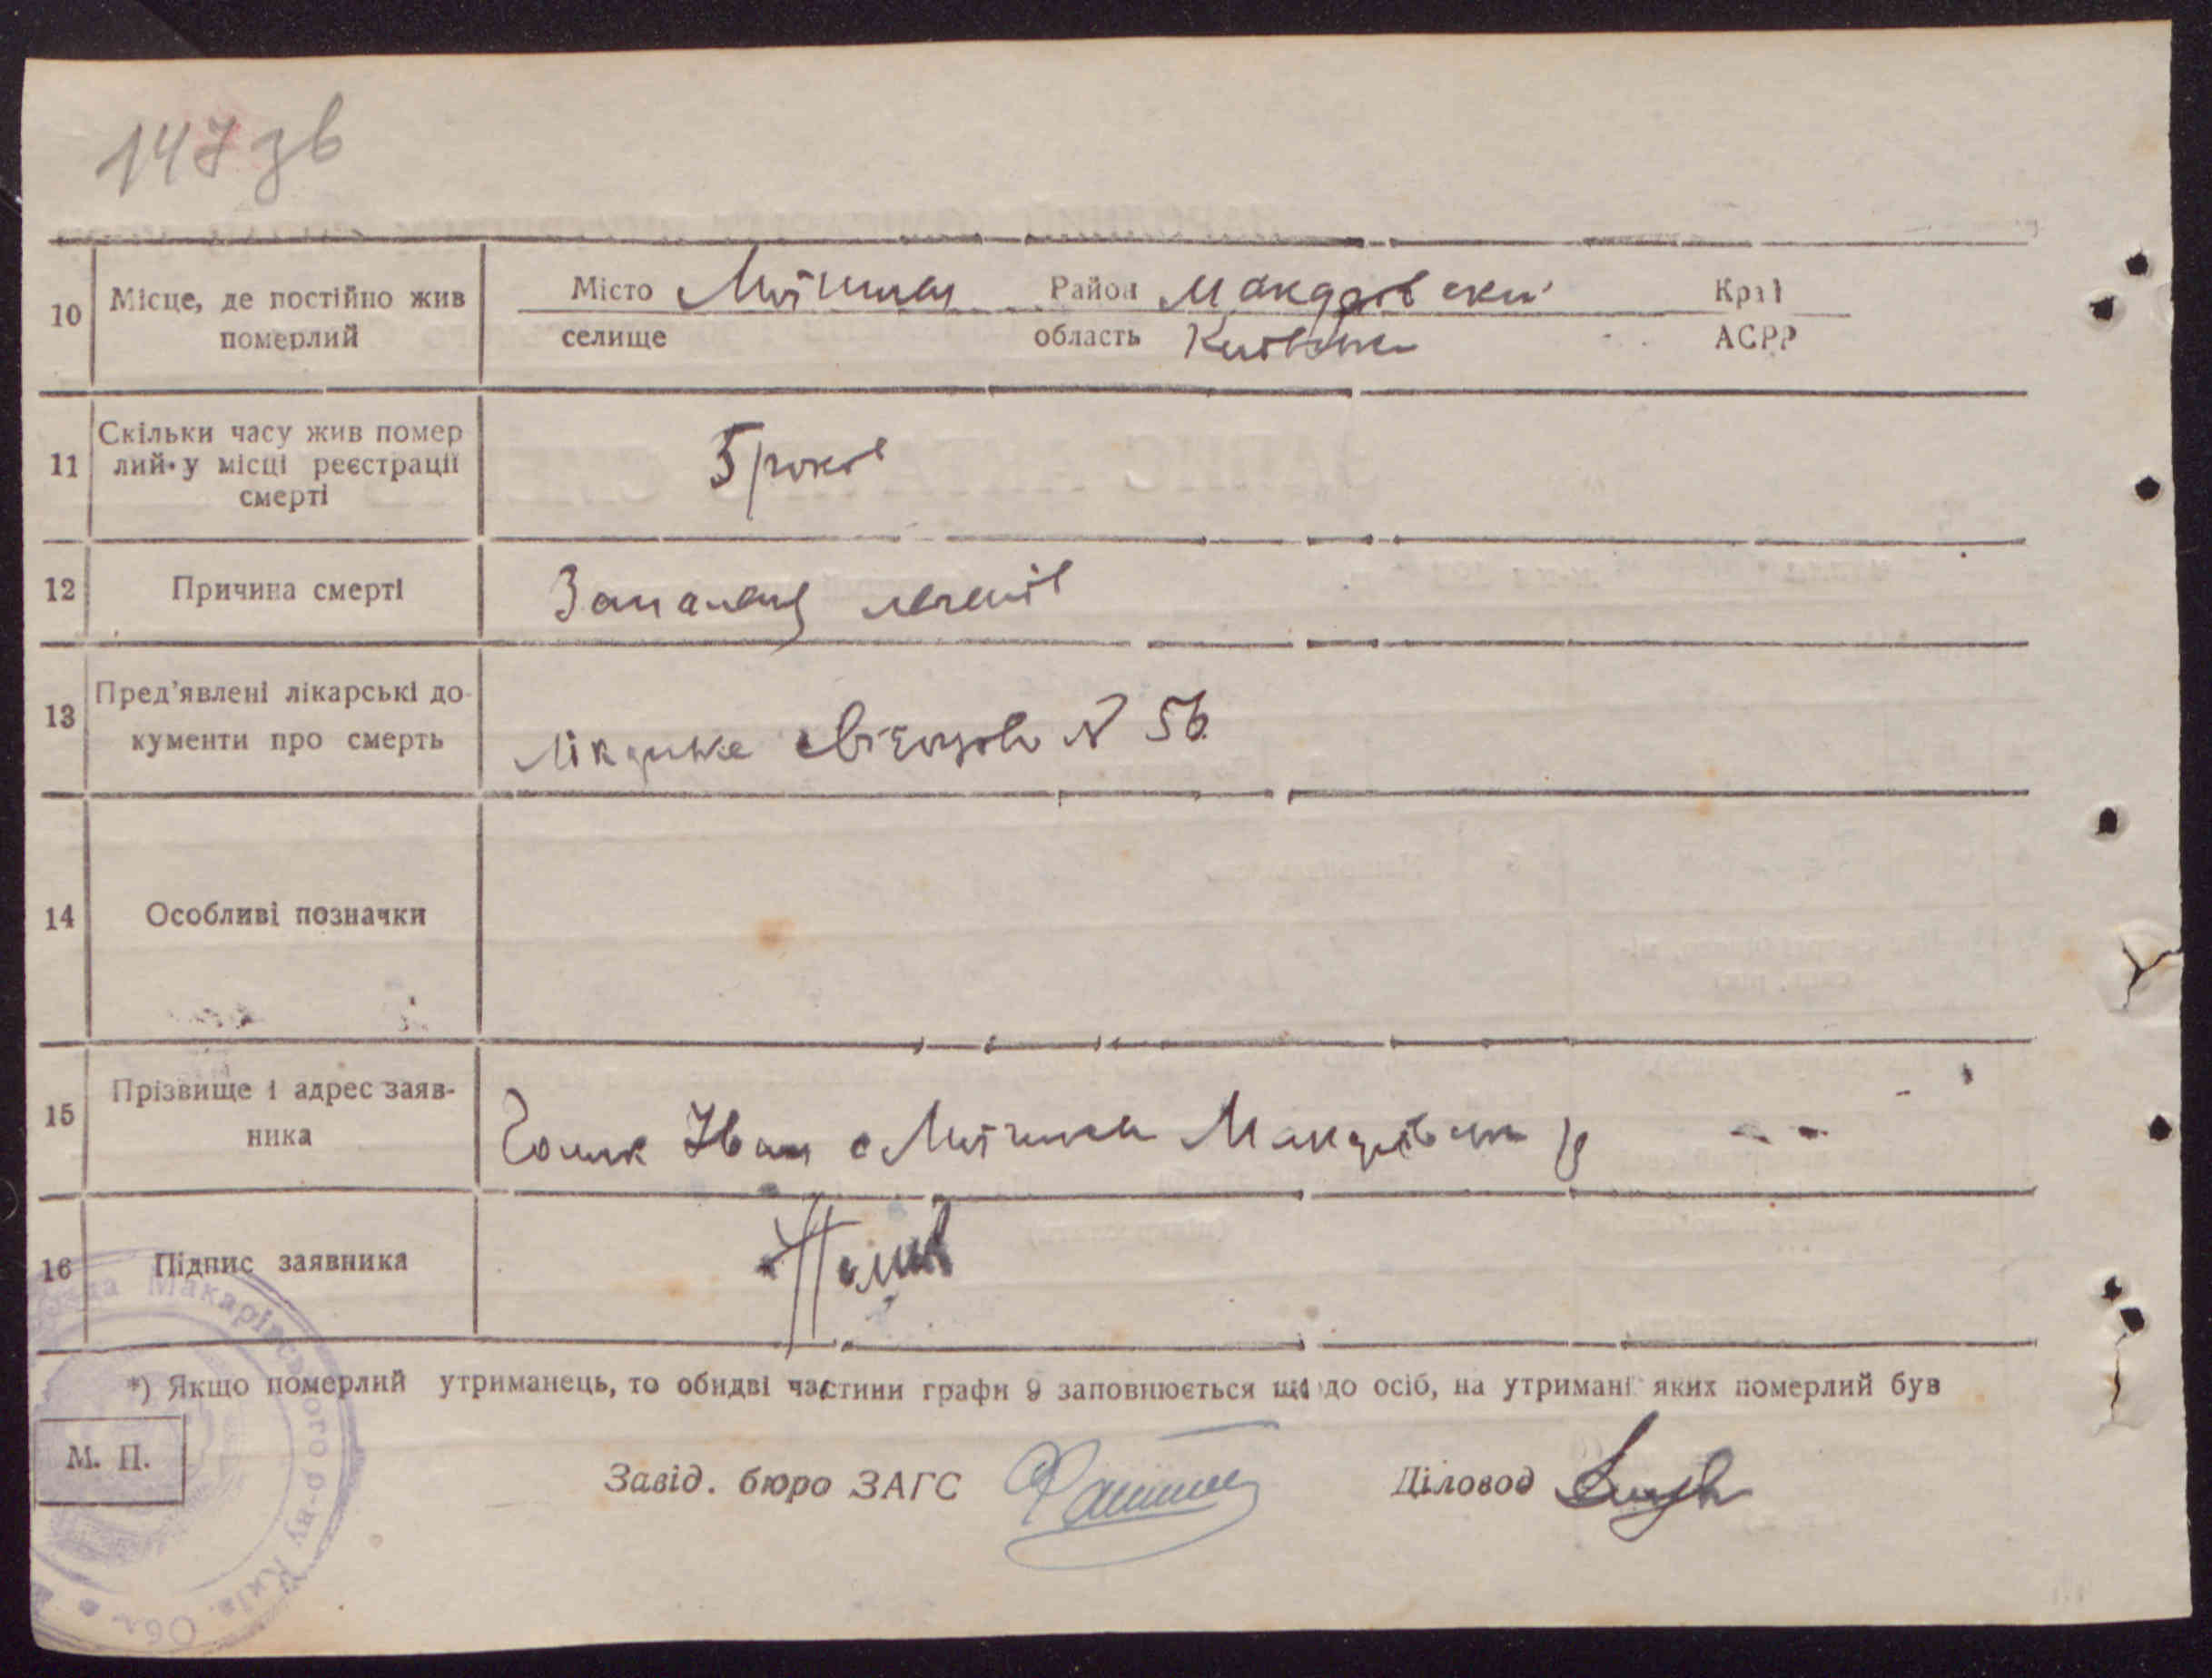 147 зв
10 Місце, де постійно жив померлий
Місто Мотижин Район Макарівский Край
селище область Київська АСРР
11 Скільки часу жив помер
лий у місці реєстрації
смерті
5 років
12 Причина смерті Запалення легенів
13 Пред'явлені лікарські до
кументи про смерть
Лікарське свідоцтво № 56
14 Особливі позначки
15 Прізвище і адрес заяв-
ника
Іван с Мотижин Макарівськ р
16 Підпис заявника
*) Якщо померлий утриманець, то обидві частини графи 9 заповнюється що до осіб, на утримані яких померлий був
М. П.
Завід. бюро ЗАГС
Діловод
Макарівського р-ву Київ. Обл